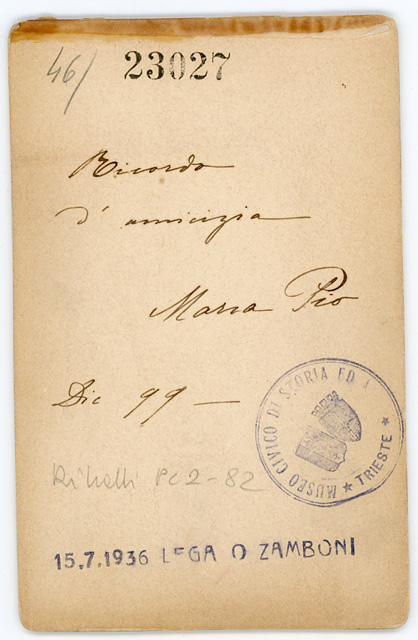 46/ 23027
Ricordo
d'amicizia
Maria Pio
Dic 99 —
Ritratti PC 2-82
MUSEO CIVICO DI STORIA ED A
★ TRIESTE ★
15.7.1936 LEGA O ZAMBONI